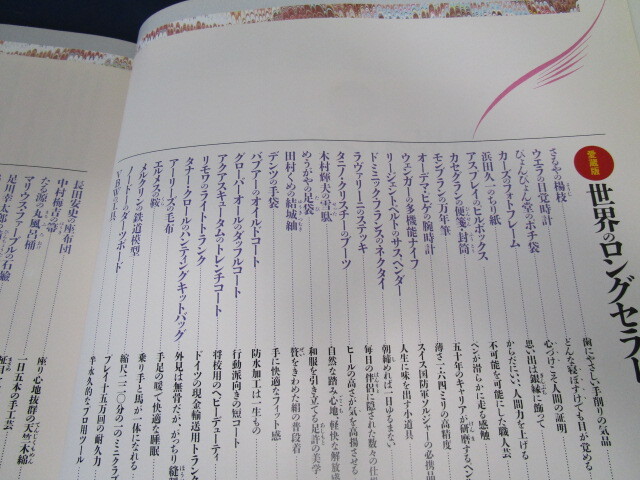 愛蔵版
世界のロングセラー
さるやの楊枝
歯にやさしい手削りの気品
ウエラの目覚時計
どんな寝ぼすけでも目が覚める
ぴょんぴょん堂のポチ袋
心づけこそ人間の証明
カーズのフォトフレーム
思い出は銀縁に飾って
浜田久一のちり紙
からだにいい、人間力を上げる
アスプレイのピルボックス
不可能を可能にした職人芸
カセグランの便箋・封筒
ペンが滑らかに走る感触
モンブランの万年筆
五十年のキャリアが研磨するペン
オーデマ・ピゲの腕時計
薄さ二・六四ミリの高精度
ウェンガーの多機能ナイフ
スイス国防軍ソルジャーの必携品
リージェントベルトのサスペンダー
人生に味を出す小道具
ドミニックフランスのネクタイ
朝締めれば一日ゆるまない
ラヴァリーニのステッキ
毎日の伴侶に隠された数々の仕掛
タニノクリスチーのブーツ
ヒールの高さが気を高揚させる
木村輝夫の雪駄
自然な踏み心地、軽快な解放感
めうがやの足袋
和服を引き立てる足許の美学
田村くめの結城紬
贅をきわめた絹の普段着
デンツの手袋
手に快適なフィット感
バブアーのオイルドコート
防水加工は一生もの
グローバーオールのダッフルコート
行動派向きの短コート
アクアスキュータムのトレンチコート
将校用のヘビーデューティ
リモワのライトトランク
ドイツの現金輸送用トランク
タナー・クロールのハンティングキットバッグ
外見は無骨だが、がっちり縫製
アーリーズの毛布
手足の暖で快適な睡眠
エルメスの鞍
乗り手と馬が一体になれる
メルクリンの鉄道模型
縮尺二二〇分の一のミニクラブ
ノードミューダーリブボード
プレイ十五万回の耐久力
半永久的なプロ用ツール
長田安史の座布団
座り心地抜群の天竺木綿
中村梅吉の箒
一日五本の手工芸
たる源の丸風呂桶
マリウスファーブルの石鹸